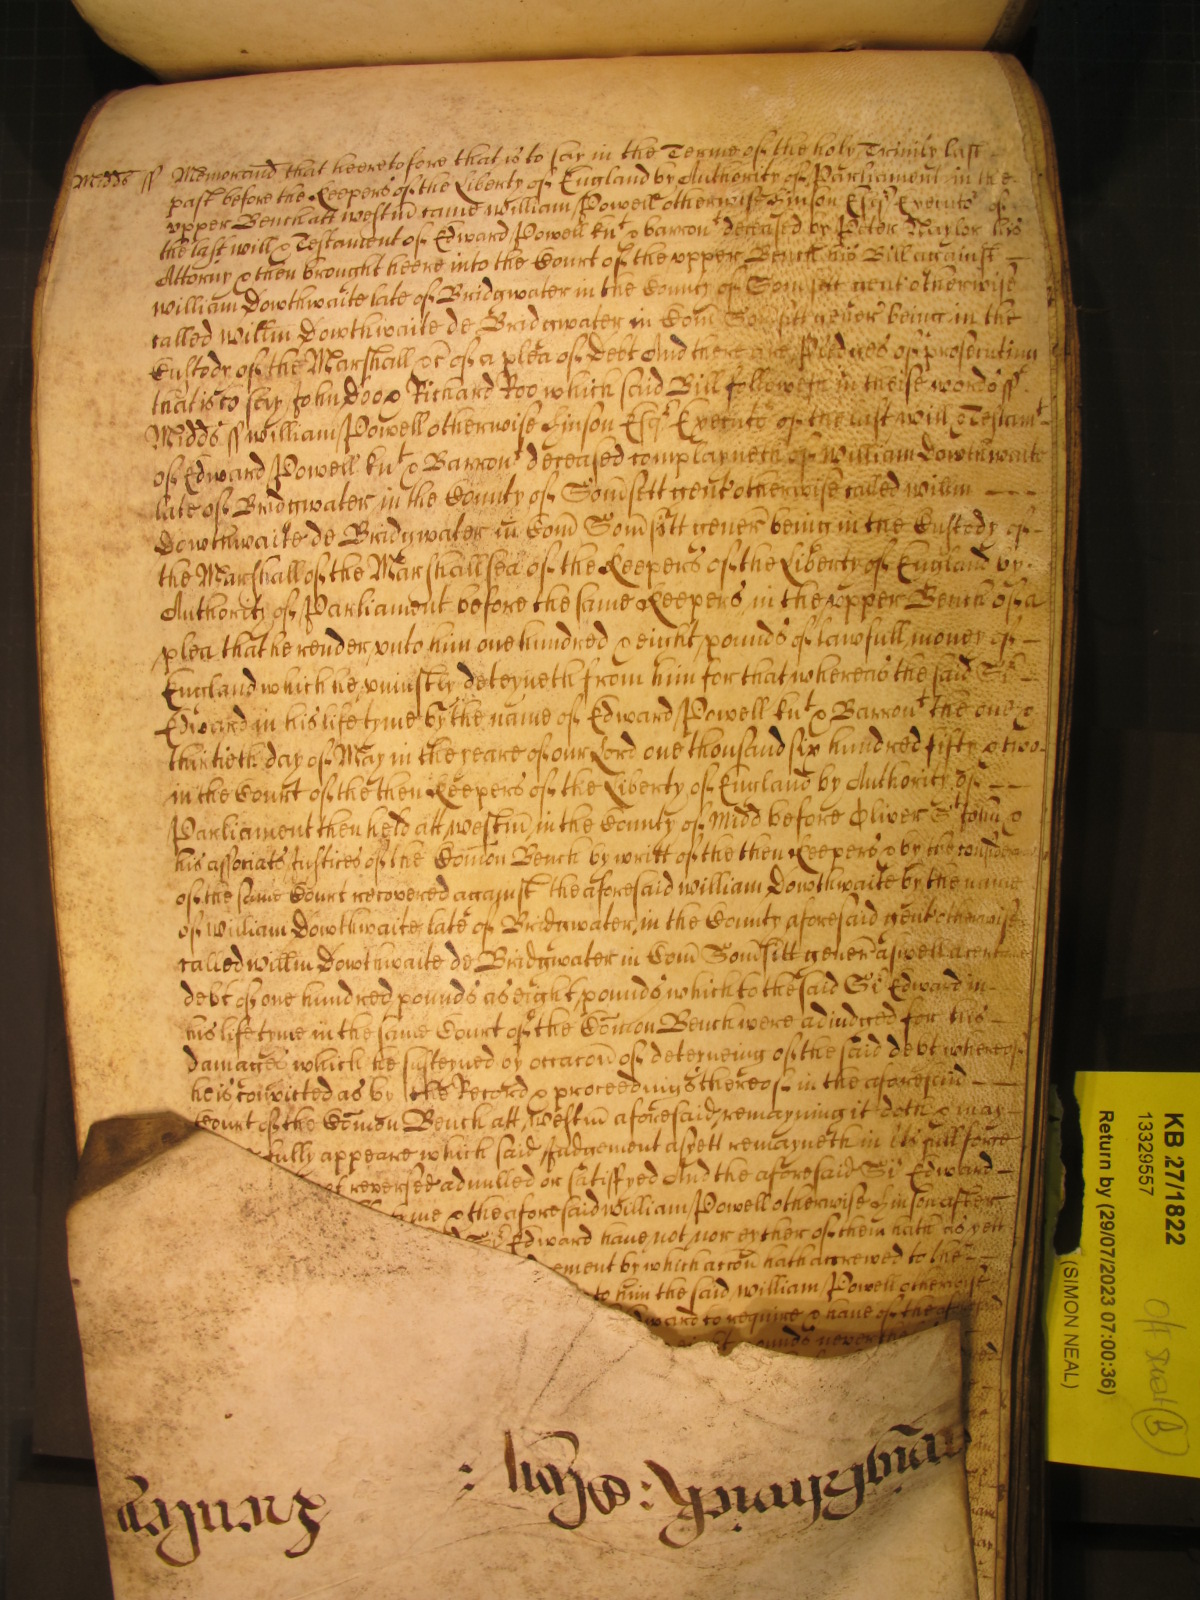 Midds ss Memorand that heeretofore that is to say in the Terme of the holy Trinity last
past before the Keepers of the Liberty of England by Authority of Parliament in the
upper Bench att westm came William Powell otherwise Hinson Esqr Executor of
the last will & Testament of Edward Powell knt & barront deceased by Peter Naylor his
Attorny & then brought heere into the Court of the upper Bench his Bill against
William Dowthwaite late of Bridgwater in the County of Somsett gent otherwise
called Willm Dowthwaite de Bridgwater in Com Somsett gener being in the
Custody of the Marshall &c of a plea of Debt And there are Pledges of prosecution
that is to say John Doo & Richard Roo which said Bill followeth in theise words ss
Midds ss William Powell otherwise Hinson Esqr Executor of the last will & Testamt
of Edward Powell knt & Barront deceased complayneth of William Dowthwaite
late of Bridgwater in the County of Somsett gent otherwise called Willm
Dowthwaite de Bridgwater in Com Somsett gener being in the Custody of
the Marshall of the Marshallsea of the Keepers of the Liberty of England by
Authority of Parliament before the same Keepers in the upper Bench of a
plea that he render unto him one hundred & eight pounds of lawfull money of
England which he uniustly deteyneth from him for that whereas the said Sr
Edward in his life tyme by the name of Edward Powell knt & Barront the one &
thirtieth day of May in the yeare of our Lord one thousand six hundred fifty & two
in the Court of the then Keepers of the Liberty of England by Authority of
Parliament then held att westm in the County of Midd before Oliver St John &
his associats Justices of the Comon Bench by writt of the then Keepers & by the consider
of the same Court recovered against the aforesaid William Dowthwaite by the name
of William Dowthwaite late of Bridgwater in the County aforesaid gent otherwise
called Willm Dowthwaite de Bridgwater in Com Somsett gener aswell a certeine
debt of one hundred pounds as eight pounds which to the said Sr Edward in
his life tyme in the same Court of the Comon Bench were adiudged for his
damages which he susteyned by occacon of deteyneing of the said debt whereof
he is convicted as by the Record & proceedings thereof in the aforesaid
Court of the Comon Bench att westm aforesaid remayning it doth & may
fully appeare which said Judgement as yett remayneth in its full force
not reversed adnulled or satisfyed And the aforesaid Sr Edward
tyme & the aforesaid William Powell otherwise Hinson after
Sr Edward have not nor eyther of them hath as yett
ement by which accon hath accrewed to the
to him the said William Powell otherwise
dward to require & have of the
pounds neverthe
KB 27/1822
13329557
Return by (29/07/2023 07:00:36)
(SIMON NEAL)